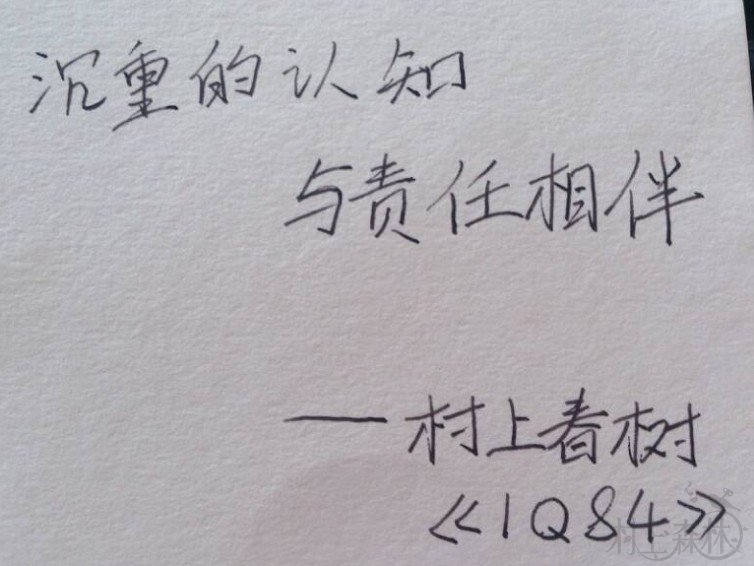 沉重的认知
与责任相伴
——村上春树
《1Q84》
村上森林